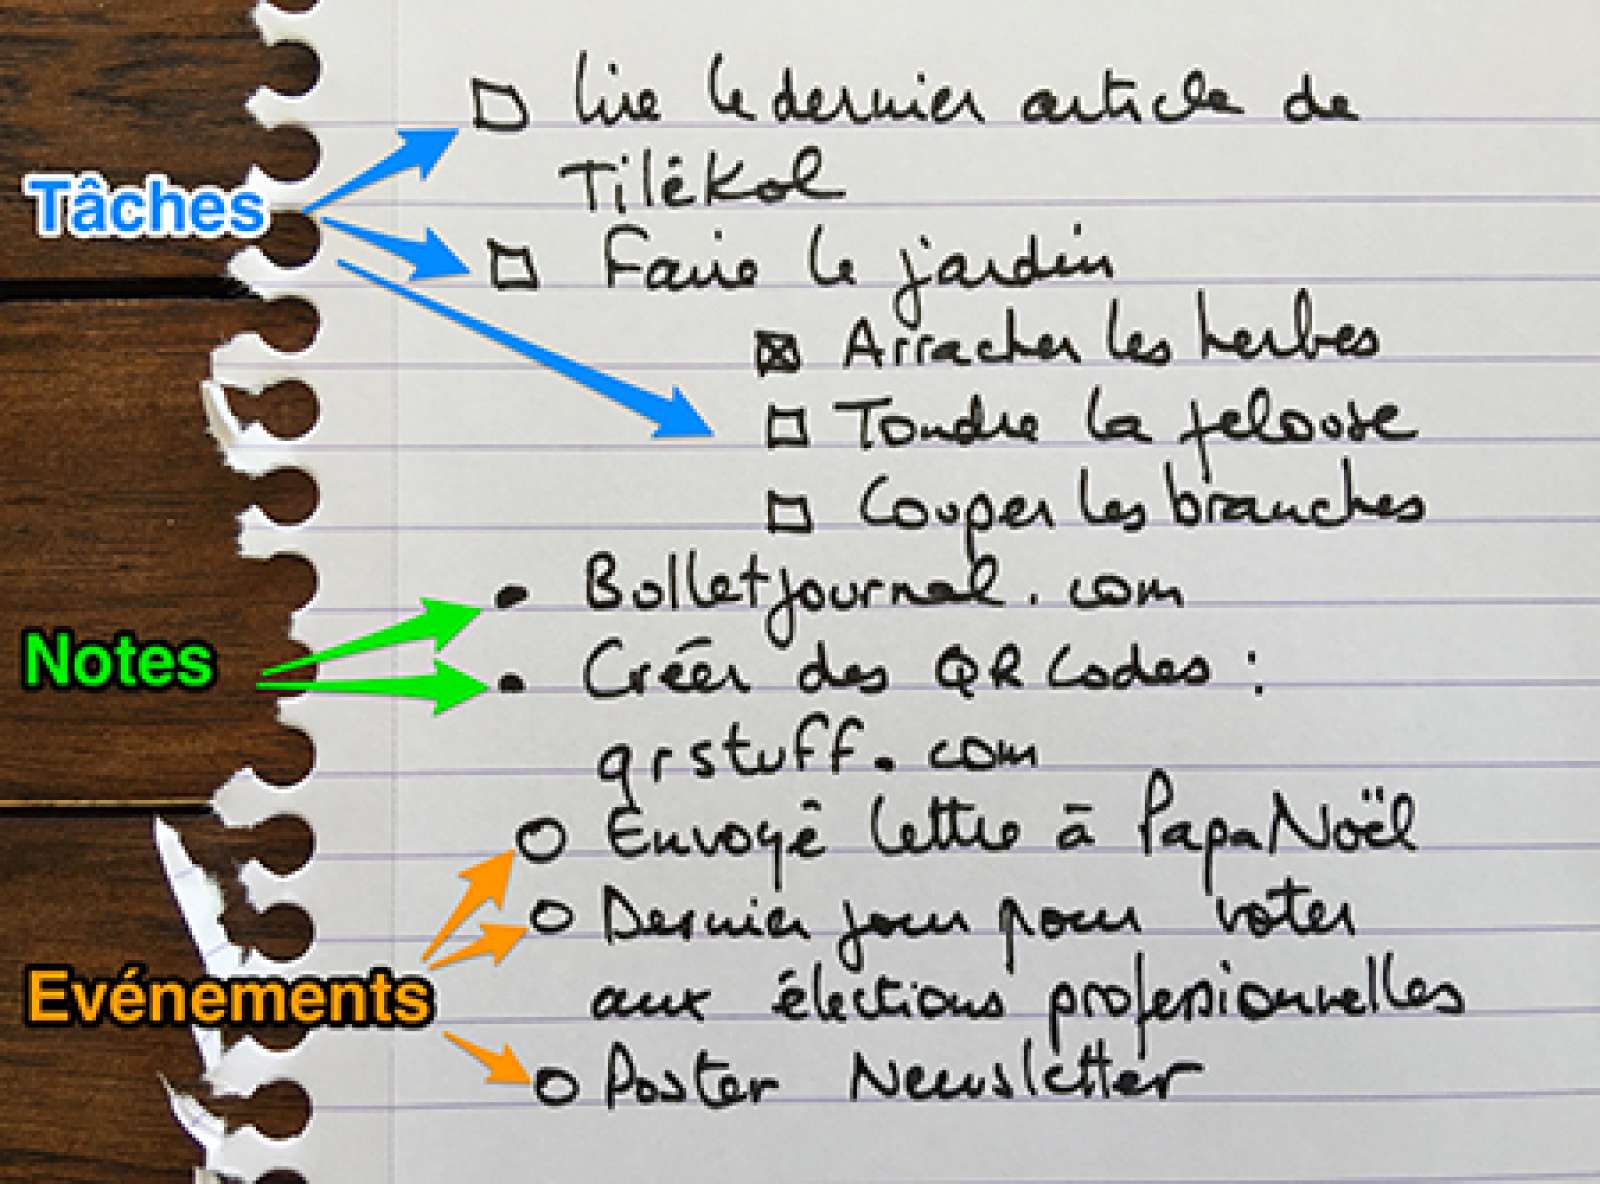 ☐ Lire le dernier article de
Tilékol
Tâches
☐ Faire le jardin
☒ Arracher les herbes
☐ Tondre la pelouse
☐ Couper les branches
• Bolletjournal.com
Notes
• Créer des QR Codes :
qrstuff.com
○ Envoyé lettre à Papa Noël
○ Dernier jour pour voter
Evénements
aux élections professionnelles
○ Poster Newsletter